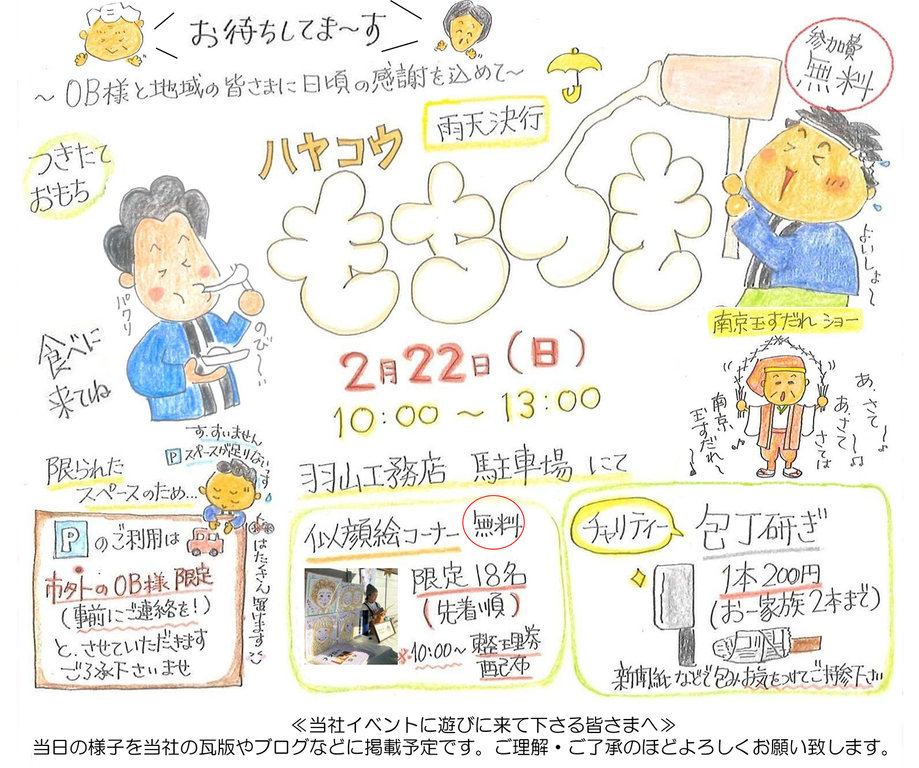 お待ちしてま〜す
〜OB様と地域の皆さまに日頃の感謝を込めて〜
参加費
無料
雨天決行
ハヤコウ
もちつき
つきたて
おもち
パクリ
のび〜
食べに
来てね
よいしょ〜
2月22日(日)
10:00〜13:00
羽山工務店 駐車場にて
南京玉すだれショー
あ、さて
あ、さて〜
さては
南京
玉すだれ〜
す、すいません
Pスペースが足りないです
限られた
スペースのため…
Pのご利用は
市外のOB様限定
(事前にご連絡を!)
と、させていただきます
ご了承下さいませ
似顔絵コーナー
無料
限定18名
(先着順)
※10:00〜整理券
配布
チャリティー
包丁研ぎ
1本200円
(お一家族2本まで)
新聞紙などで包みお気をつけてご持参下さい
≪当社イベントに遊びに来て下さる皆さまへ≫
当日の様子を当社の瓦版やブログなどに掲載予定です。ご理解・ご了承のほどよろしくお願い致します。